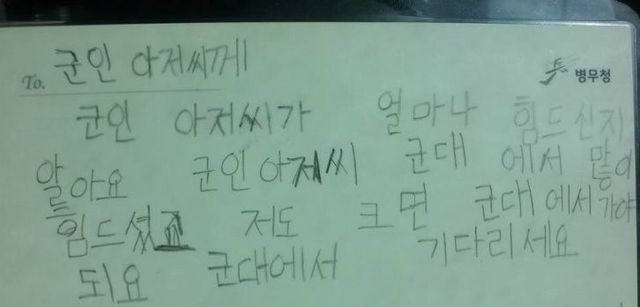 To. 군인 아저씨께
병무청
군인 아저씨가 얼마나 힘드신지
알아요 군인 아저씨 군대에서 많이
힘드셨죠 저도 크면 군대에서 가야
되요 군대에서 기다리세요